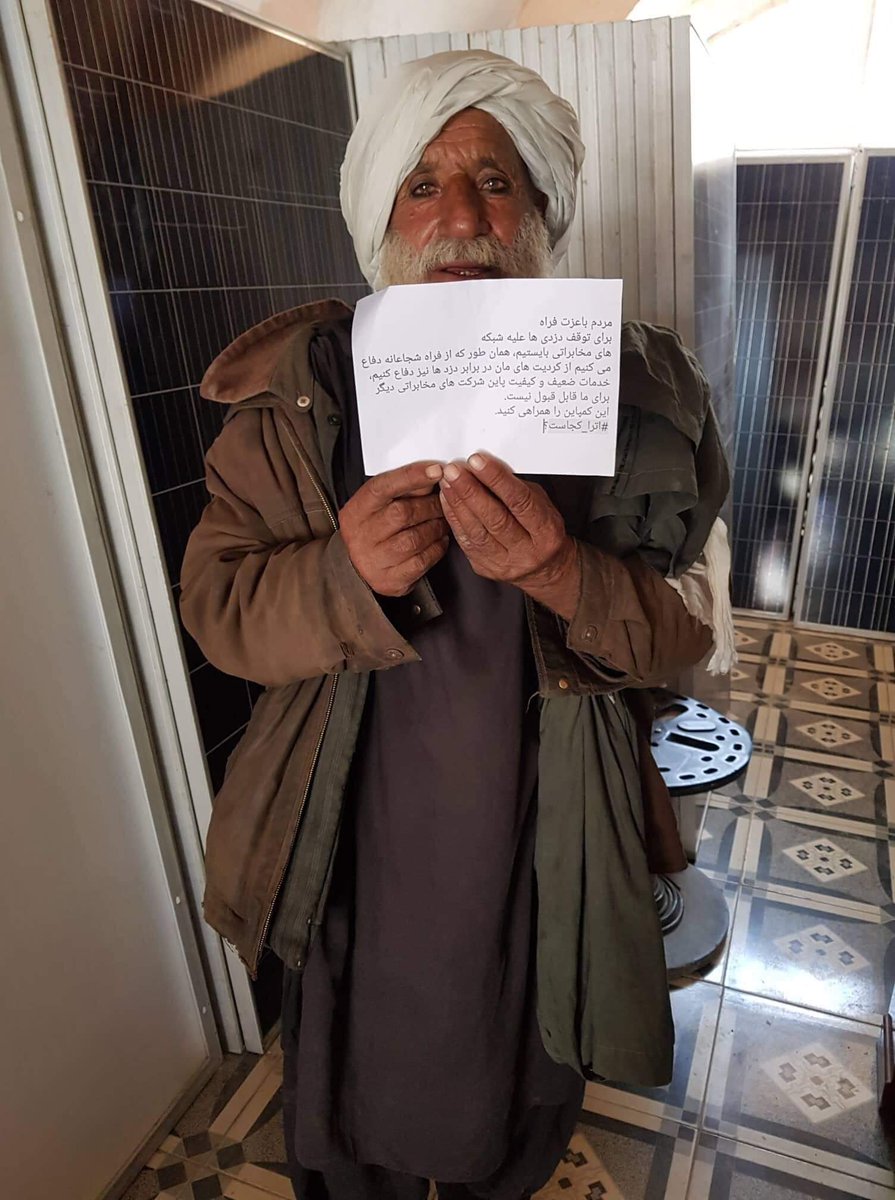 مردم باعزت فراه
برای توقف دزدی ها علیه شبکه
های مخابراتی بایستیم، همان طور که از فراه شجاعانه دفاع
می کنیم از کردیت های مان در برابر دزد ها نیز دفاع کنیم،
خدمات ضعیف و کیفیت پاین شرکت های مخابراتی دیگر
برای ما قابل قبول نیست.
این کمپاین را همراهی کنید.
#اترا_کجاست؟